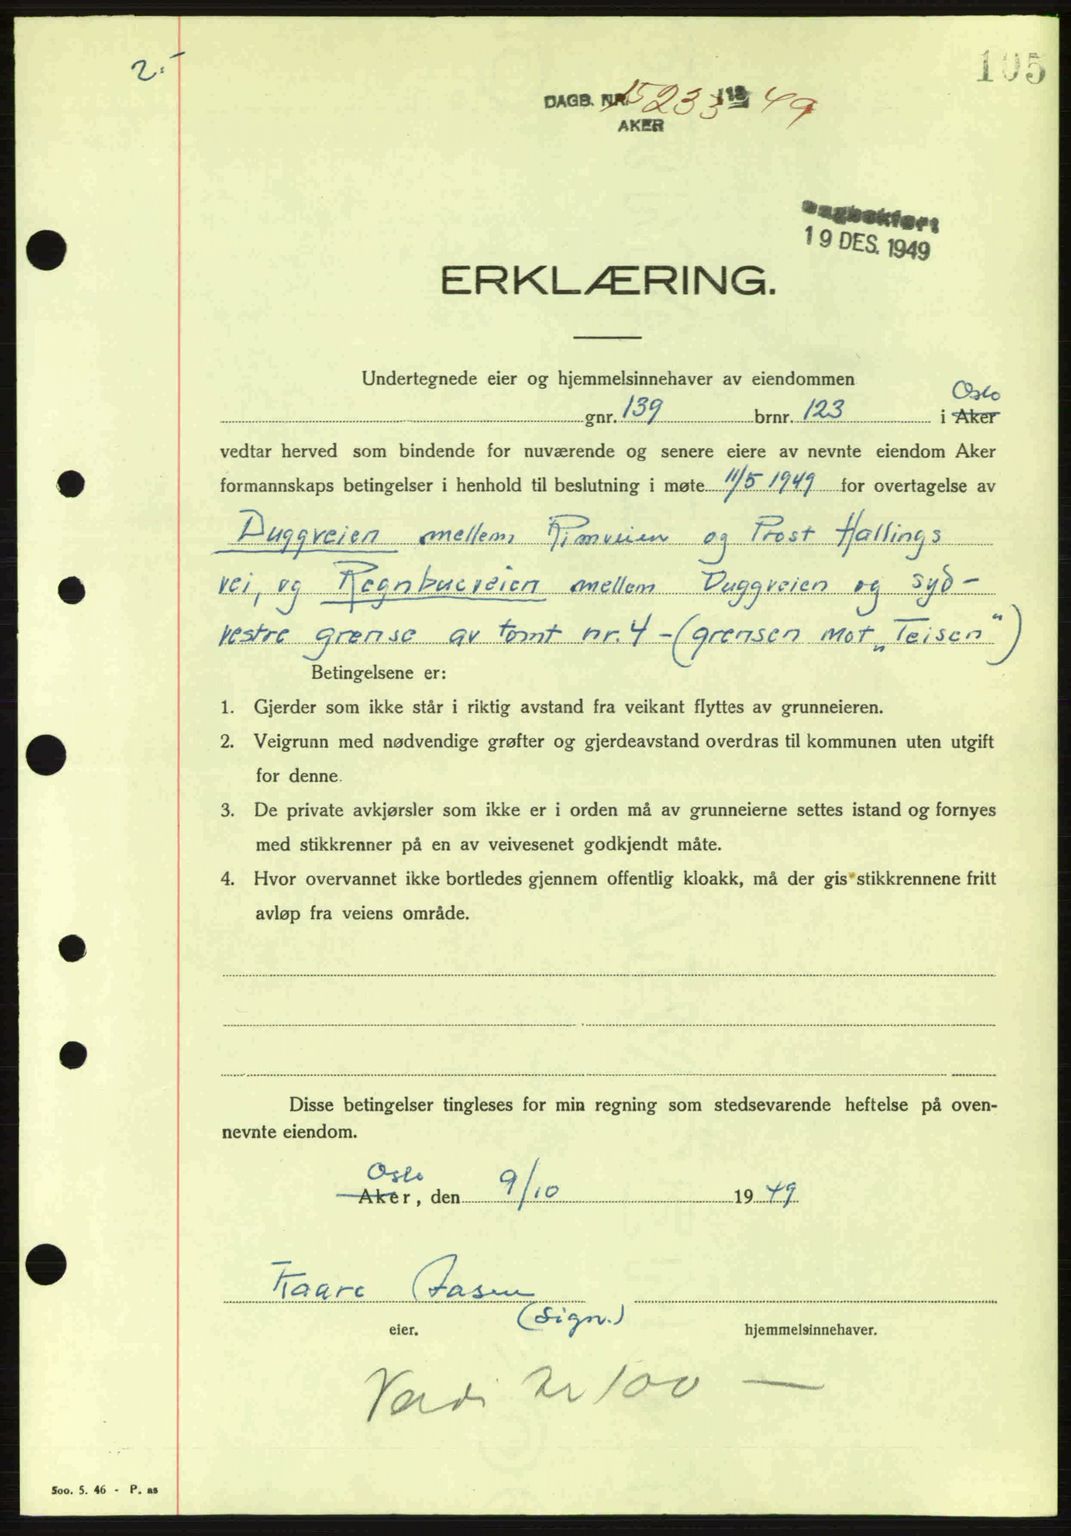 2.-
105
DAGB. NR. 15233 49
AKER
Dagbokført
19 DES. 1949
ERKLÆRING.
Undertegnede eier og hjemmelsinnehaver av eiendommen
Oslo
gnr. 139 brnr. 123 i Aker
vedtar herved som bindende for nuværende og senere eiere av nevnte eiendom Aker
formannskaps betingelser i henhold til beslutning i møte 11/5 1949 for overtagelse av
Duggveien mellem Rimveien og Prost Hallings
vei, og Regnbueveien mellem Duggveien og syd-
vestre grense av tomt nr. 4 - (grensen mot „Teisen")
Betingelsene er:
1. Gjerder som ikke står i riktig avstand fra veikant flyttes av grunneieren.
2. Veigrunn med nødvendige grøfter og gjerdeavstand overdras til kommunen uten utgift
for denne.
3. De private avkjørsler som ikke er i orden må av grunneierne settes istand og fornyes
med stikkrenner på en av veivesenet godkjendt måte.
4. Hvor overvannet ikke bortledes gjennem offentlig kloakk, må der gis stikkrennene fritt
avløp fra veiens område.
Disse betingelser tingleses for min regning som stedsevarende heftelse på oven-
nevnte eiendom.
Oslo
Aker, den 9/10 1949
Kaare Aasen
(sign.)
eier. hjemmelsinnehaver.
Verdi kr 100 —
5oo. 5. 46 - P. as